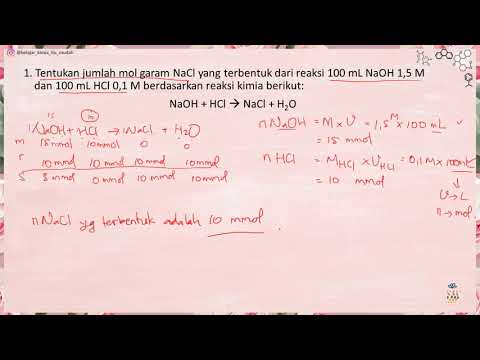 @belajar_kimia_itu_mudah
1. Tentukan jumlah mol garam NaCl yang terbentuk dari reaksi 100 mL NaOH 1,5 M
dan 100 mL HCl 0,1 M berdasarkan reaksi kimia berikut:
NaOH + HCl → NaCl + H₂O
1NaOH + HCl → 1NaCl + H₂O
m 15 mmol 10 mmol 0 0
r 10 mmol 10 mmol 10 mmol 10 mmol
s 5 mmol 0 mmol 10 mmol 10 mmol
n NaOH = M × V = 1,5 M × 100 mL
= 15 mmol
n HCl = M HCl × V HCl = 0,1 M × 100 mL
= 10 mmol
V → L
n → mol.
n NaCl yg terbentuk adalah 10 mmol.